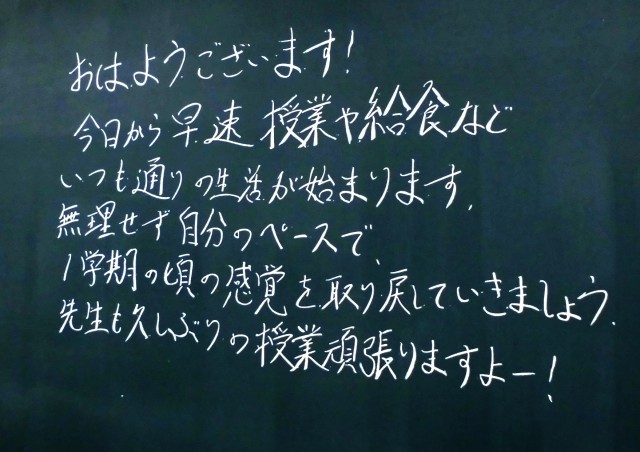 おはようございます!
今日から早速授業や給食など
いつも通りの生活が始まります。
無理せず自分のペースで、
1学期の頃の感覚を取り戻していきましょう。
先生も久しぶりの授業頑張りますよー!